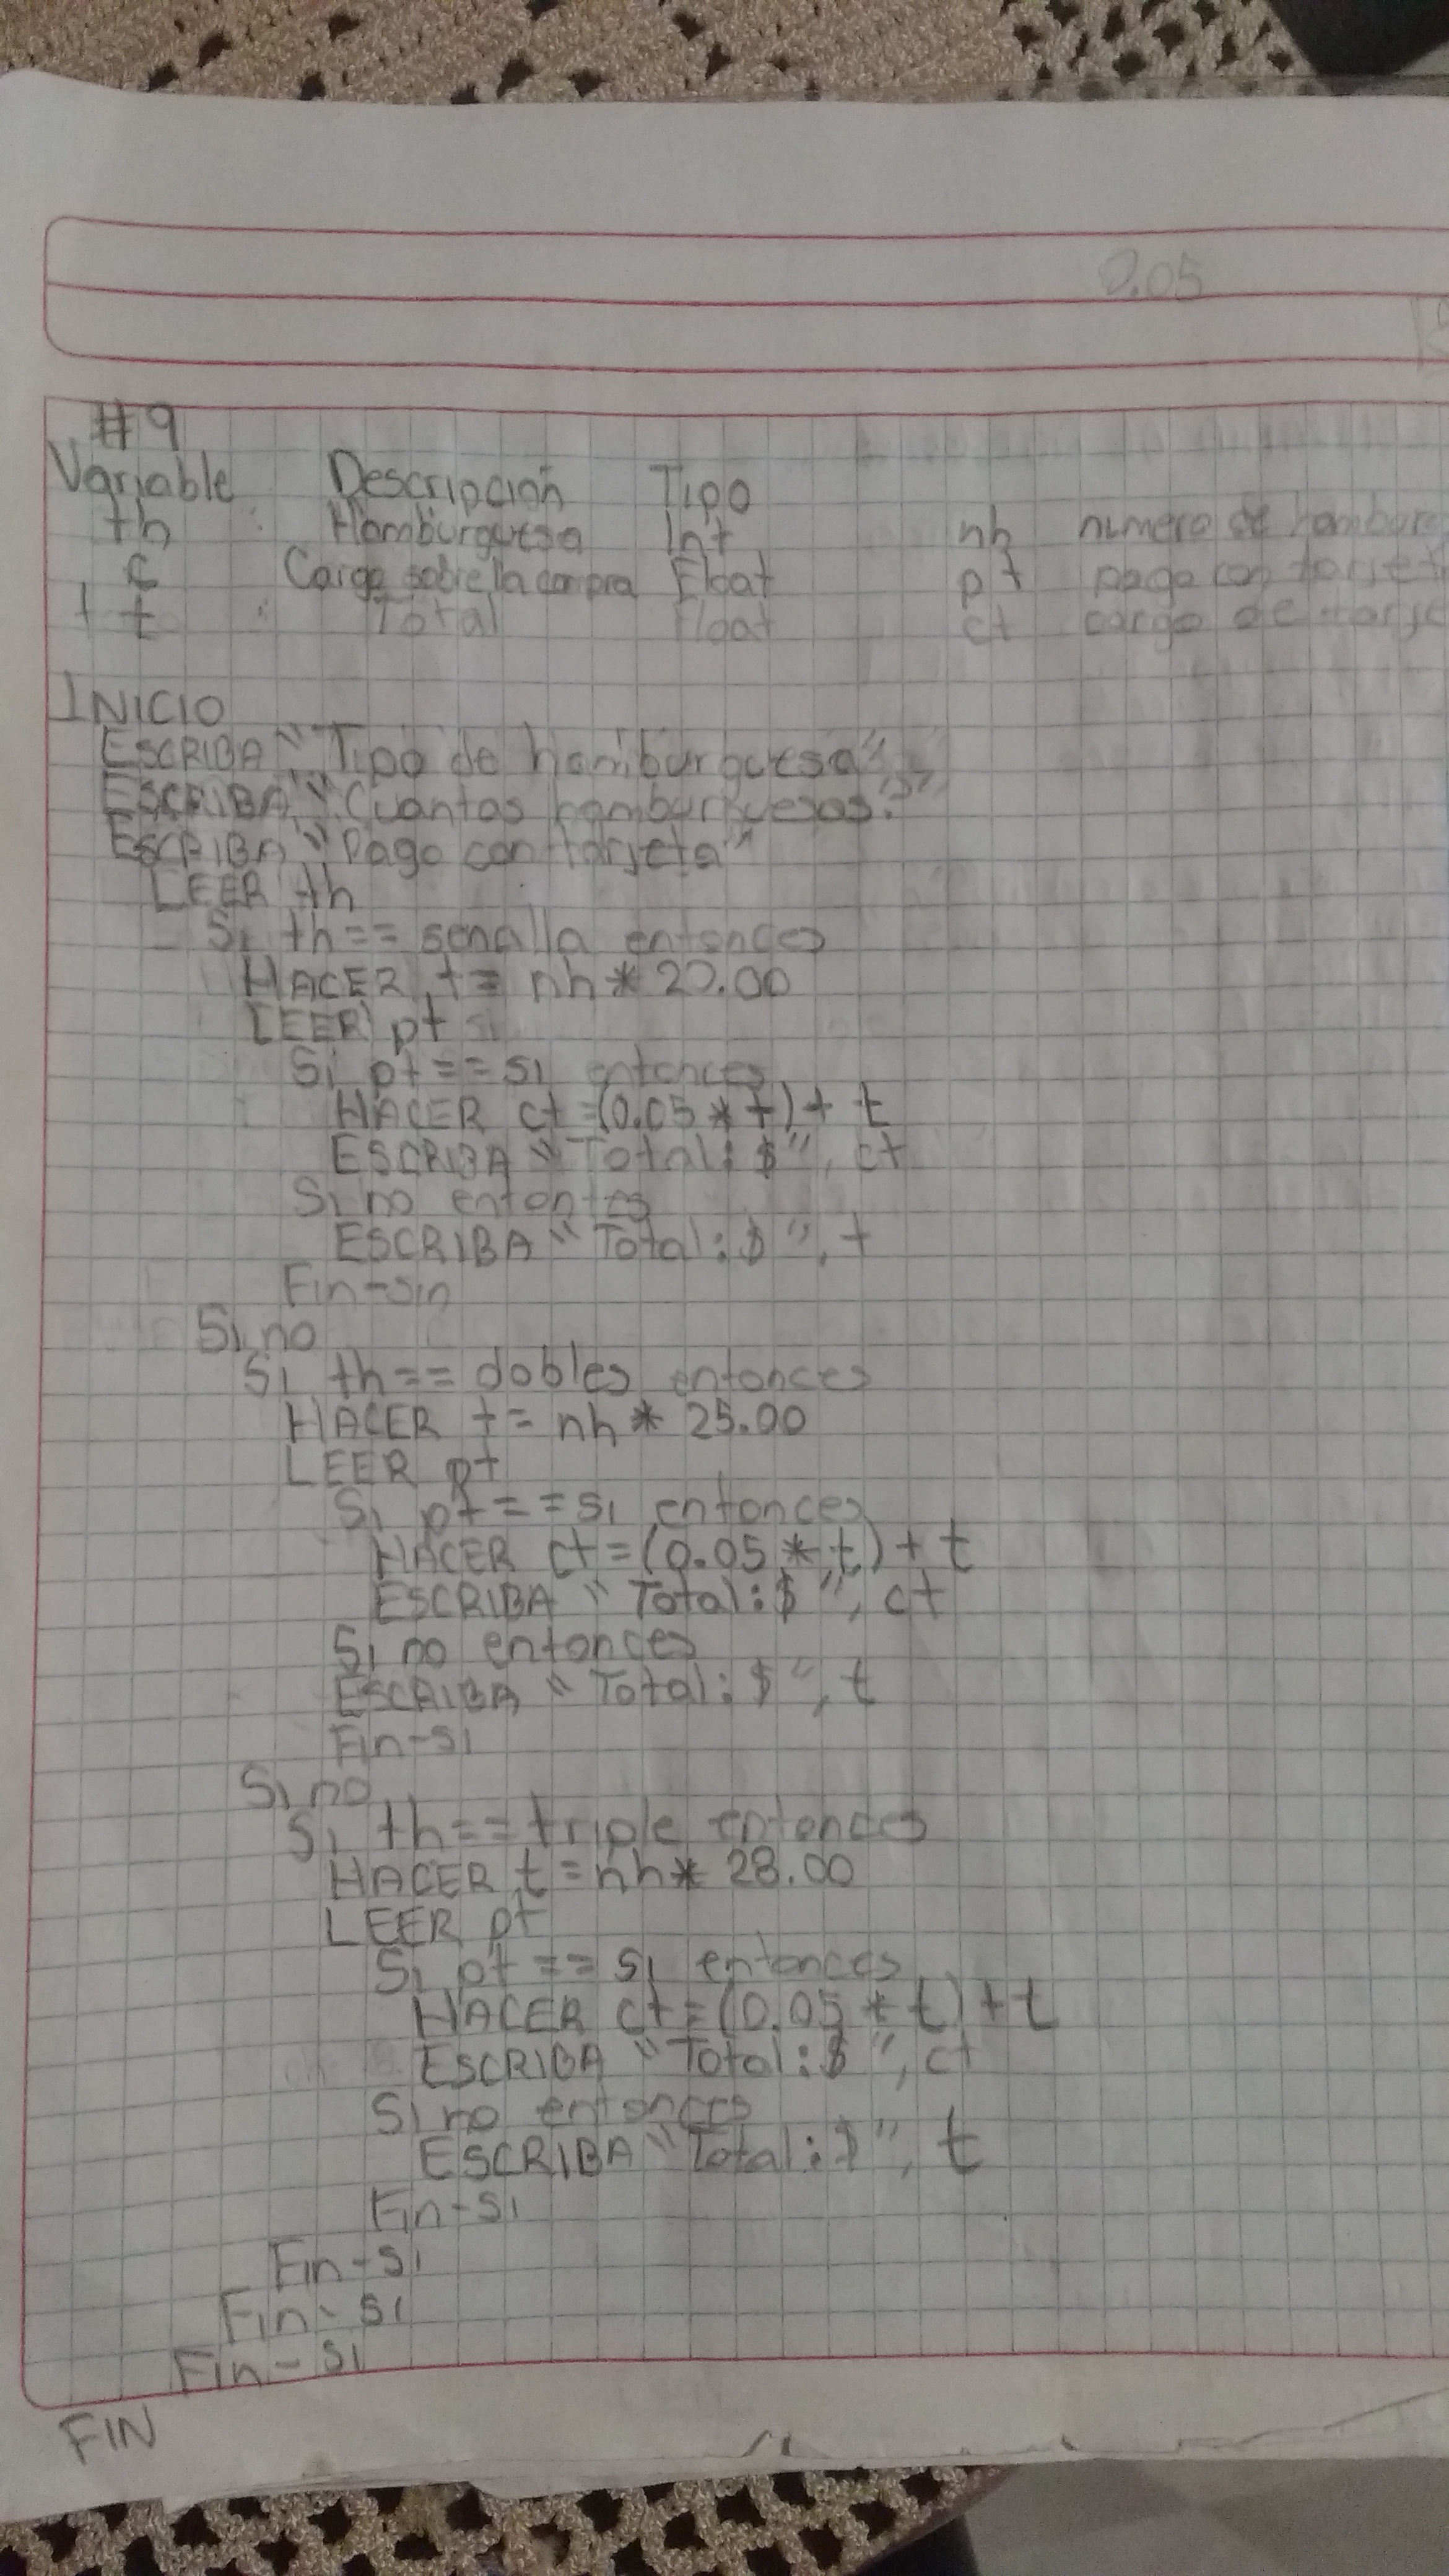 0.05
#9
Variable Descripción Tipo
th : Hamburguesa Int nh numero de hamburg
c Cargo sobre la compra Float pt pago con tarjet
t : Total Float ct cargo de tarje
INICIO
ESCRIBA "Tipo de hamburguesa"
ESCRIBA "Cuantas hamburguesas?"
ESCRIBA "Pago con tarjeta"
LEER th
Si th == senalla entonces
HACER t = nh * 20.00
LEER pt
Si pt == si entonces
HACER ct = (0.05 * t) + t
ESCRIBA "Total: $", ct
Si no entontes
ESCRIBA "Total: $", t
Fin-sin
Si no
Si th == dobles entonces
HACER t = nh * 25.00
LEER pt
Si pt == si entonces
HACER ct = (0.05 * t) + t
ESCRIBA "Total: $", ct
Si no entonces
ESCRIBA "Total: $", t
Fin-si
Si no
Si th == triple entonces
HACER t = nh * 28.00
LEER pt
Si pt == si entonces
HACER ct = (0.05 * t) + t
ESCRIBA "Total: $", ct
Si no entonces
ESCRIBA "Total: $", t
Fin-si
Fin-si
Fin-si
Fin-si
FIN